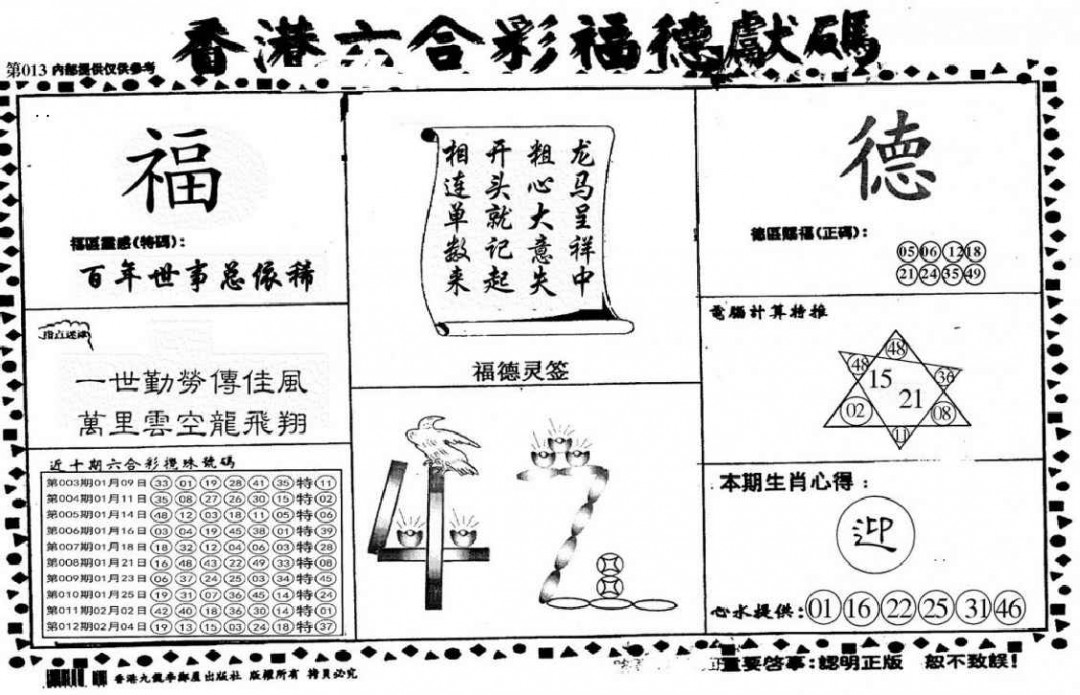 香港六合彩福德獻碼
第013 内部提供仅供参考
福
福區靈感(特碼):
百年世事总依稀
指点迷津
一世勤勞傳佳風
萬里雲空龍飛翔
近十期六合彩攪珠號碼
第003期01月09日 33 01 19 28 41 35 特 11
第004期01月11日 35 08 27 26 30 15 特 02
第005期01月14日 48 12 03 18 11 05 特 06
第006期01月16日 03 04 19 45 38 01 特 39
第007期01月18日 18 32 12 04 06 03 特 28
第008期01月21日 16 48 43 22 49 33 特 08
第009期01月23日 06 37 24 25 03 34 特 45
第010期01月25日 19 31 07 36 45 14 特 24
第011期02月02日 42 40 18 36 30 14 特 01
第012期02月04日 19 13 15 03 24 18 特 37
龙马呈祥中
粗心大意失
开头就记起
相连单数来
福德灵签
德
德區賜福(正碼):
05 06 12 18
21 24 35 49
電腦計算特推
48
48 15 36
21
02 08
11
本期生肖心得:
迎
心水提供: 01 16 22 25 31 46
香港九龍 出版社 版權所有 拷貝必究
重要啓事:認明正版 恕不致誤!